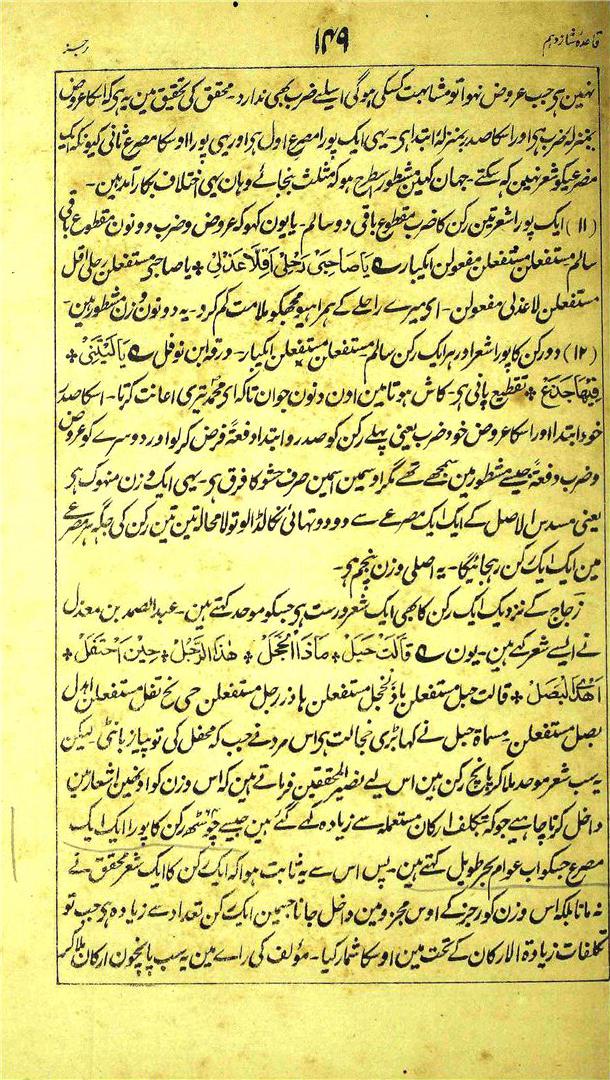 قاعدہ شانزدہم ۱۴۹ رجز
نہین ہی جب عروض نہوا تو مشابہت کسکی ہوگی اسلیے ضرب بھی ندارد۔ محقق کی تحقیق مین یہ ہی کہ اسکا عروض
بمنزلہ ضرب ہی اور اسکا صدر بمنزلہ ابتدا ہی۔ یہی ایک پورا مصرع اول ہی اور یہی پورا اوسکا مصرع ثانی کیونکہ ایک
مصرعیکو شعر نہین کہ سکتے۔ جہان کہین مشطور اسطرح ہو کہ مثلث بنجائے وہان یہی اختلاف بکار آمد ہین۔
(۱۱) ایک پورا شعر تین رکن کا ضرب مقطوع باقی دو سالم۔ یا یون کہو کہ عروض و ضرب دونون مقطوع باقی
سالم مستفعلن مستفعلن مفعولن ایکبار ؎ یَا صَاحِبَیْ رَحْلِیْ اَقِلَّا عَذْلِیْ ٭ یا صاحبی مستفعلن رحلی اقل
مستفعلن لا عذلی مفعولن۔ ای میرے راحلے کے ہمراہیو مجھکو ملامت کم کرو۔ یہ دونون وزن مشطور ہین۔
(۱۲) دو رکن کا پورا شعر اور ہر ایک رکن سالم مستفعلن مستفعلن ایکبار۔ ورقہ ابن نوفل ؎ یَا لَیْتَنِیْ ٭
فِیْهَا جَذَعْ ٭ تقطیع پانی ہی۔ کاش ہوتا مین اون دنون جوان تاکہ ای محمد تیری اعانت کرتا۔ اسکا صدر
خود ابتدا اور اسکا عروض خود ضرب یعنی پہلے رکن کو صدر و ابتدا دفعةً فرض کرلو اور دوسرے کو عروض
و ضرب دفعةً جیسے مشطور مین سمجھے تھے مگر اوسمین اسمین صرف حشو کا فرق ہی۔ یہی ایک وزن منہوک ہی
یعنی مسدس الاصل کے ایک ایک مصرعے سے دو دو تہائی نکال ڈالو تو لا محالہ تین تین رکن کی جگہ ہر مصرعے
مین ایک ایک رکن رہجائیگا۔ یہ اصلی وزن پنجم ہی۔
زجاج کے نزدیک ایک رکن کا بھی ایک شعر درست ہی جسکو موحد کہتے ہین۔ عبد الصمد بن معذل
نے ایسے شعر کہے ہین۔ یون ؎ قَالَتْ حَبَلْ ٭ مَاذَا الْخَجَلْ ٭ هٰذَا الرَّجُلْ ٭ حِیْنَ احْتَفَلْ ٭
اَهْدٰی الْبَصَلْ ٭ قالت حبل مستفعلن ماذلخجل مستفعلن ہاذررجل مستفعلن حی نح تفل مستفعلن اہدل
بصل مستفعلن۔ مسماة حبل نے کہا بڑی خجالت ہی اس مرد نے جب کہ محفل کی تو پیاز بانٹی۔ لیکن
یہ سب شعر موحد ملاکر پانچ رکن ہین اس لیے نصیر المحققین فرماتے ہین کہ اس وزن کو اونہین اشعار مین
داخل کرنا چاہیے جو کہ بتکلف ارکان مستعملہ سے زیادہ کہے گئے ہین جیسے چوسٹھ ۶۴ رکن کا پورا ایک ایک
مصرع جسکو اب عوام بحر طویل کہتے ہین۔ پس اس سے یہ ثابت ہوا کہ ایک رکن کا ایک شعر محقق نے
نہ مانا بلکہ اس وزن کو رجز کے اوس مجزو مین داخل جانا جسمین ایک رکن تعداد سے زیادہ ہی جب تو
تکلفات زیادة الارکان کے تحت مین اوسکا شمار کیا۔ مؤلف کی راے مین یہ سب پانچون ارکان ملاکر